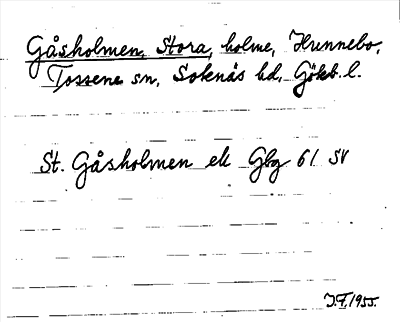 Gåsholmen, Stora, holme, Hunnebo,
Tossene sn, Sotenäs hd, Göteb. l.
St. Gåsholmen ek Gbg 61 SV
J.F. 1955.